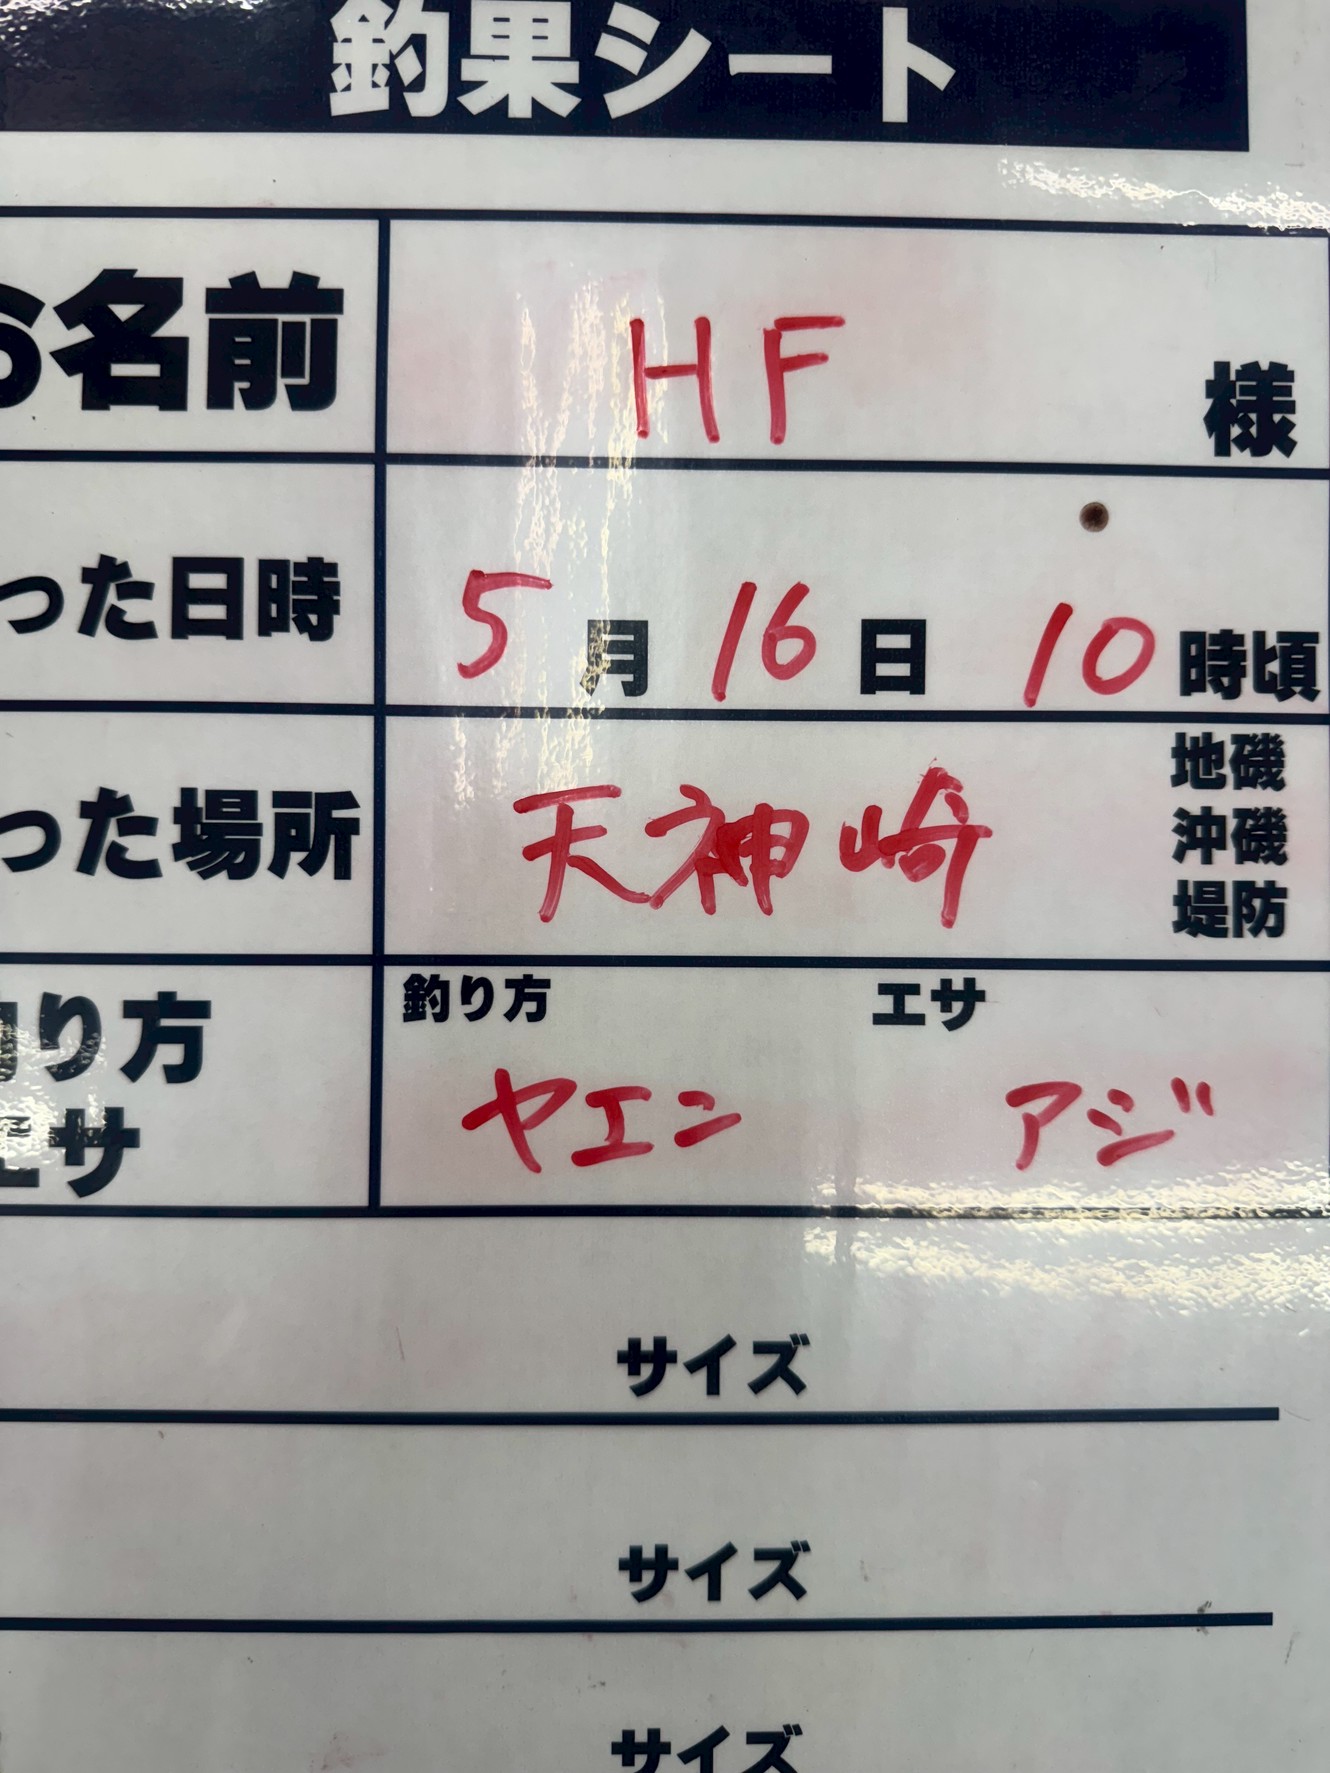 釣果シート
お名前 HF 様
った日時 5月16日 10時頃
った場所 天神崎 地磯
沖磯
堤防
釣り方 エサ
釣り方
エサ
ヤエン アジ
サイズ
サイズ
サイズ